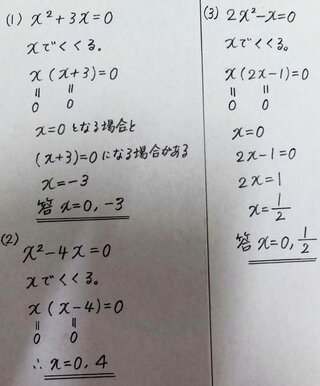 (1) x²+3x=0
xでくくる。
x(x+3)=0
〃 〃
0 0
x=0となる場合と
(x+3)=0になる場合がある
x=-3
答 x=0, -3
(2)
x²-4x=0
xでくくる。
x(x-4)=0
〃 〃
0 0
∴ x=0, 4
(3) 2x²-x=0
xでくくる。
x(2x-1)=0
〃 〃
0 0
x=0
2x-1=0
2x=1
x=1/2
答 x=0, 1/2